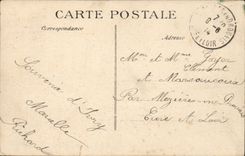 CARTE POSTALE
Correspondance
Adresse
Souvenir d'Ivry
Marcelle
Richard
Mme et Mme
Clément
à Marsauceux
Par Mézières en
Eure et Loir